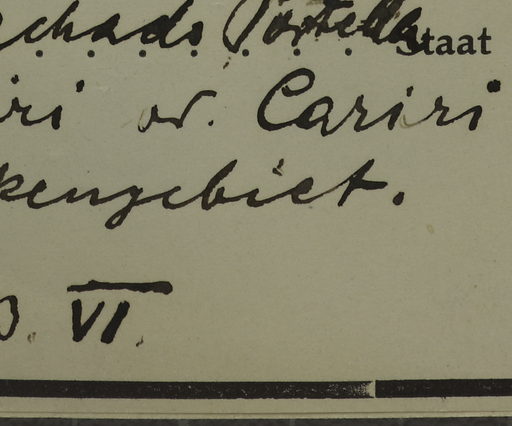 achado Portella Staat
iri od. Cariri
kengebiet.
0. VI.